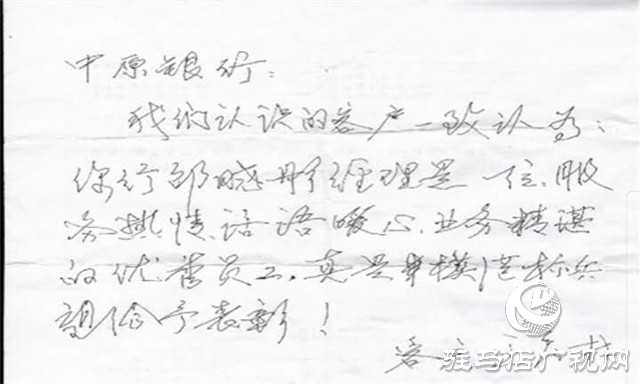 中原银行:
我们认识的客户一致认为:
你行邵晓彤经理是一位、服
务热情、话语暖心、业务精谌
的优秀员工,真是模范标兵
请给予表彰!
客户
驻马店广视网